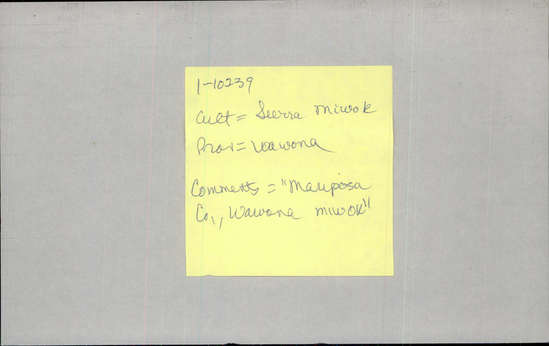 1-10239
Cult = Sierra Miwok
Prov = Wawona
Comments = "Mariposa
Co., Wawona Miwok"